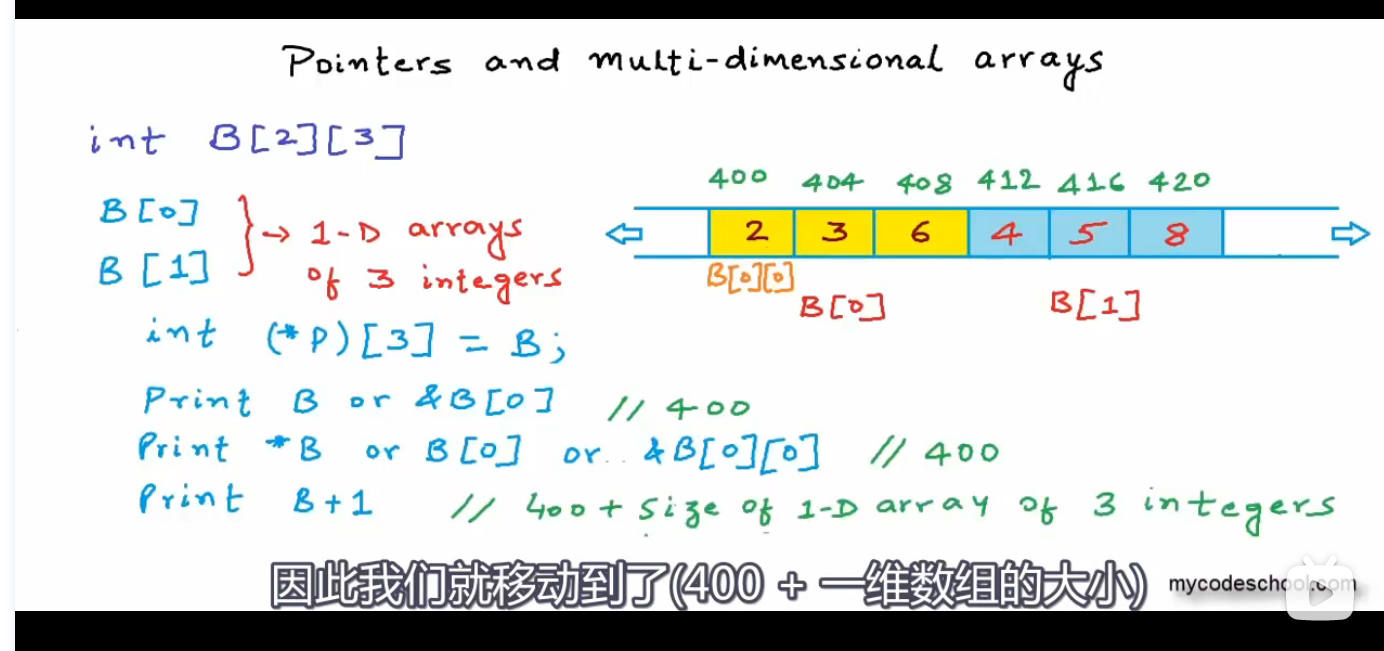 Pointers and multi-dimensional arrays
int B[2][3]
400 404 408 412 416 420
B[0]
B[1]
} → 1-D arrays
of 3 integers
2 3 6 4 5 8
B[0][0]
B[0] B[1]
int (*P)[3] = B;
Print B or &B[0] // 400
Print *B or B[0] or &B[0][0] // 400
Print B+1 // 400 + Size of 1-D array of 3 integers
因此我们就移动到了(400 + 一维数组的大小)
mycodeschool.com